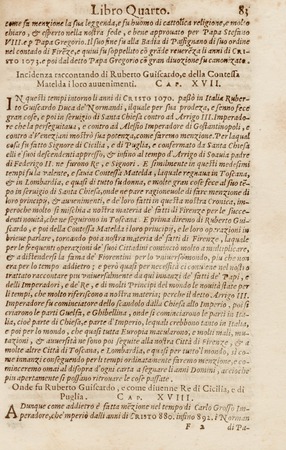 Libro Quarto. 83
come fu menzione la sua leggenda, e fu huomo di cattolica religione, e molto
chiaro, & esperto nella nostra fede, e bene approuato per Papa Stefano
VIII. e p Papa Gregorio. Il suo fine fu alla Badia di Passignano di suo ordine
nel contado di Firẽze, e quiui fu soppelito cõ grãde reuerẽza li anni di CRI
STO 1073. e poi dal detto Papa Gregorio cõ gran diuozione fu canonizato.
Incidenza raccontando di Ruberto Guiscardo, e della Contessa
Matelda i loro auuenimenti. CAP. XVII.
IN questi tempi intorno li anni di CRISTO 1070. passò in Italia Ruber
to Guiscardo Duca de' Normandi, il quale per sua prodeza, e senno fece
gran cose, e poi in seruigio di Santa Chiesa contro ad Arrigo III. Imperado-
re che la perseguitaua, e contro ad Alessio Imperadore di Gostantinopoli, e
contro a' Veneziani mostrò sua potenza, come faremo menzione. Per la qual
cosa fu fatto Signore di Cicilia, e di Puglia, e confermato da Santa Chiesa
elli e suoi discendenti appresso, & infino al tempo d'Arrigo di Soauia padre
di Federigo II. ne furono Re, e Signori. E simil mente in questi medesimi
tempi fu la valente, e saua Contessa Matelda, la quale regnaua in Toscana,
& in Lombardia, e quasi di tutto fu donna, e molte gran cose fece al suo tẽ-
po in seruigio di Santa Chiesa, onde ne pare ragioneuole di fare menzione di
loro principij, & auuenimenti, e de' loro fatti in questa nostra Cronica, im-
peroche molto si mischia a nostra materia de' fatti di Firenze per le succe-
denti nouità, che ne seguirono in Toscana. E prima diremo di Ruberto Guis-
cardo, e poi della Contessa Matelda i loro principij, e le loro operazioni in
brieue parlare, tornando poi a nostra materia de' fatti di Firenze, la quale
per le frequenti operazioni de' suoi Cittadini cominciò molto a multiplicare,
& a distendersi la fama de' Fiorentini per lo vniuerso mondo, piu che non
era per lo tempo addietro; e però quasi per necessità ci conuiene nel nostro
trattato raccontare piu vniuersalmente da qui innanzi de' fatti de' Papi, e
delli Imperadori, e de' Re, e di molti Principi del mondo le nouità state per
li tempi, che molto riferiscono a nostra materia; perche il detto Arrigo III.
Imperadore fu cominciatore dello scandalo dalla Chiesa allo Imperio, poi si
criarono le parti Guelfa, e Ghibellina, onde si cominciarono le parti in Ita-
lia, cioè parte di Chiesa, e parte d'Imperio, le quali crebbono tanto in Italia,
e fuori per lo mondo, che quasi tutta Europia macularono, e molti mali, mu-
razioni, & auuersità ne sono poi seguite alla nostra Città di Firenze, & a
molte altre Città di Toscana, e Lombardia, e quasi per tutto 'l mondo, si co-
me innanzi conseguendo per i tempi ordinatamente faremo menzione, e co-
minceremo omai al disopra d'ogni carta a segnare li anni Domini, accioche
piu apertamente si possano ritrouare le cose passate.
Onde fu Ruberto Guiscardo, e come diuenne Re di Cicilia, e di
Puglia. CAP. XVIII.
ADunque come addietro è fatta mẽzione nel tempo di Carlo Grosso Im-
peradore, che 'mperiò dalli anni di CRISTO 880. infino 892. i Norman
F 2 di Pa-